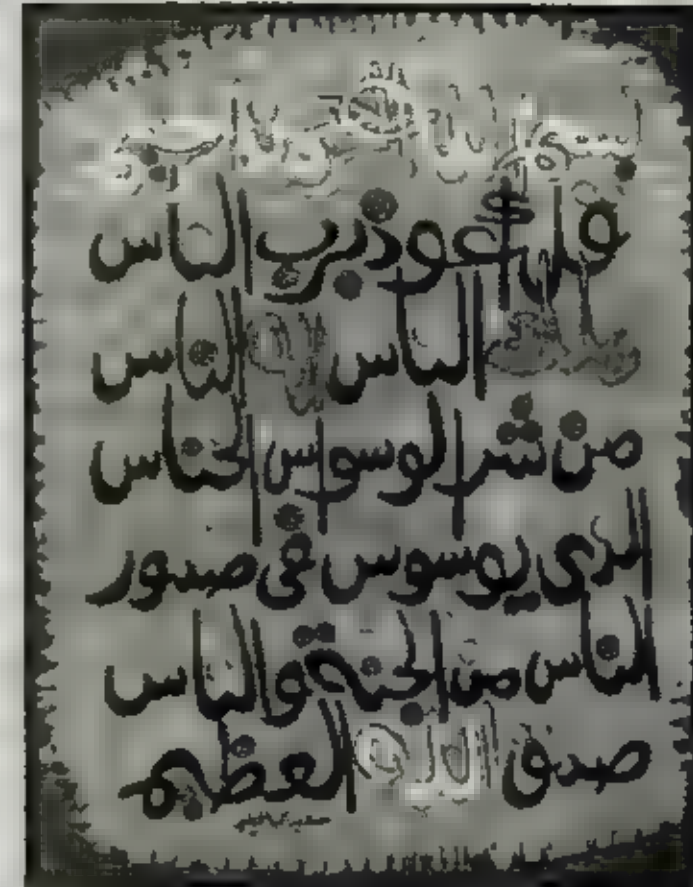 بسم الله الرحمن الرحيم
قل أعوذ برب الناس
ملك الناس إله الناس
من شر الوسواس الخناس
الذي يوسوس في صدور
الناس من الجنة والناس
صدق الله العظيم